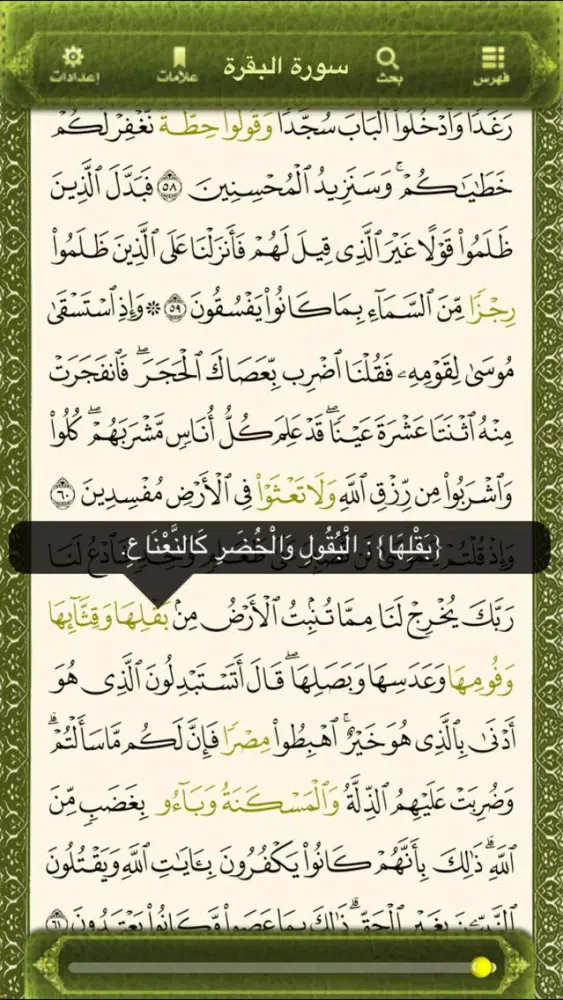 إعدادات علامات سورة البقرة بحث فهرس
رَغَدًا وَٱدْخُلُواْ ٱلْبَابَ سُجَّدًا وَقُولُواْ حِطَّةٌ نَّغْفِرْ لَكُمْ
خَطَٰيَٰكُمْ ۚ وَسَنَزِيدُ ٱلْمُحْسِنِينَ ٥٨ فَبَدَّلَ ٱلَّذِينَ
ظَلَمُواْ قَوْلًا غَيْرَ ٱلَّذِى قِيلَ لَهُمْ فَأَنزَلْنَا عَلَى ٱلَّذِينَ ظَلَمُواْ
رِجْزًا مِّنَ ٱلسَّمَآءِ بِمَا كَانُواْ يَفْسُقُونَ ٥٩ ۞ وَإِذِ ٱسْتَسْقَىٰ
مُوسَىٰ لِقَوْمِهِۦ فَقُلْنَا ٱضْرِب بِّعَصَاكَ ٱلْحَجَرَ ۖ فَٱنفَجَرَتْ
مِنْهُ ٱثْنَتَا عَشْرَةَ عَيْنًا ۖ قَدْ عَلِمَ كُلُّ أُنَاسٍ مَّشْرَبَهُمْ ۖ كُلُواْ
وَٱشْرَبُواْ مِن رِّزْقِ ٱللَّهِ وَلَا تَعْثَوْاْ فِى ٱلْأَرْضِ مُفْسِدِينَ ٦٠
{بَقْلِهَا}: الْبُقُولِ وَالْخُضَرِ كَالنَّعْنَاعِ.
رَبَّكَ يُخْرِجْ لَنَا مِمَّا تُنۢبِتُ ٱلْأَرْضُ مِنۢ بَقْلِهَا وَقِثَّآئِهَا
وَفُومِهَا وَعَدَسِهَا وَبَصَلِهَا ۖ قَالَ أَتَسْتَبْدِلُونَ ٱلَّذِى هُوَ
أَدْنَىٰ بِٱلَّذِى هُوَ خَيْرٌ ۚ ٱهْبِطُواْ مِصْرًا فَإِنَّ لَكُم مَّا سَأَلْتُمْ ۗ
وَضُرِبَتْ عَلَيْهِمُ ٱلذِّلَّةُ وَٱلْمَسْكَنَةُ وَبَآءُو بِغَضَبٍ مِّنَ
ٱللَّهِ ۗ ذَٰلِكَ بِأَنَّهُمْ كَانُواْ يَكْفُرُونَ بِـَٔايَٰتِ ٱللَّهِ وَيَقْتُلُونَ
ٱلنَّبِيِّـۧنَ بِغَيْرِ ٱلْحَقِّ ۗ ذَٰلِكَ بِمَا عَصَواْ وَّكَانُواْ يَعْتَدُونَ ٦١